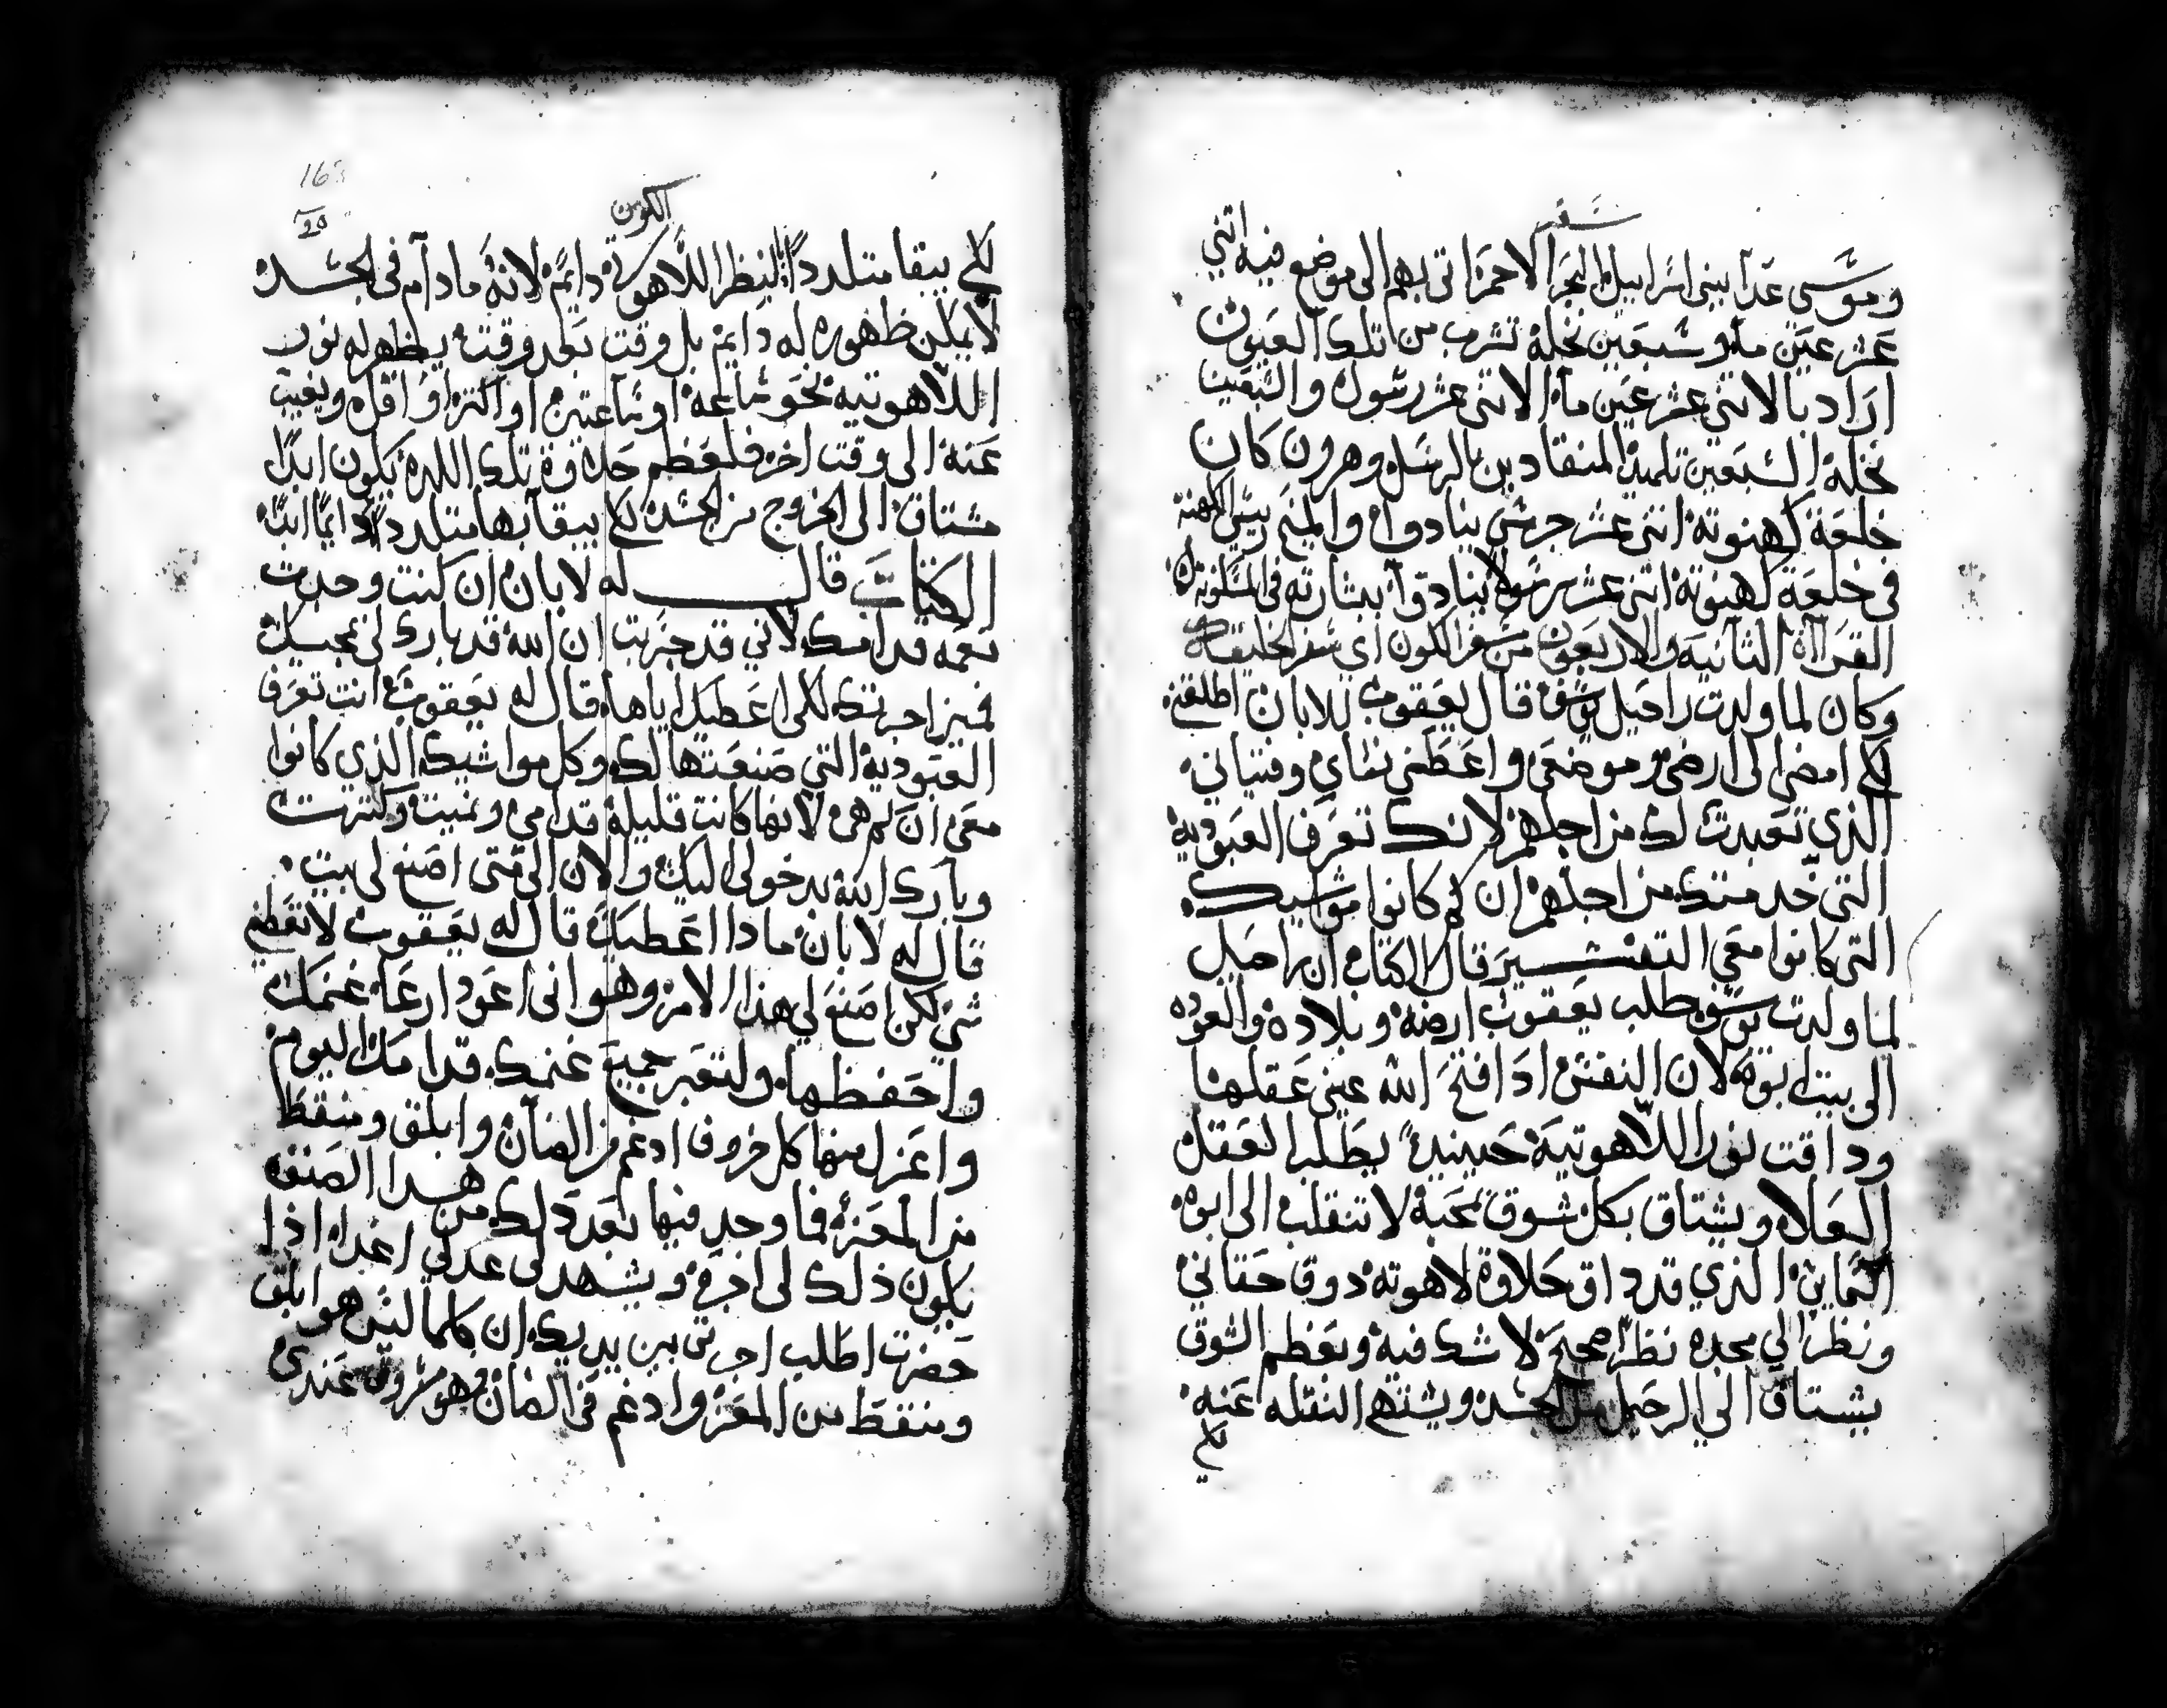 سفر
وموسى عدا ببني اسراييل البحر الاحمر اتى بهم الى موضع فيه اثني
عشر عين ماء وسبعين نخلة تشرب من تلك العيون
اراد بالاثني عشر عين ماء الاثني عشر رسول والسبعين
نخلة السبعين تلميذ المنقادين بالرسل وهرون كان
خلعة كهنوته اثني عشر جرس ينادوا والمسيح رييس الكهنة
في خلعة كهنوته اثني عشر رسولا ينادوا ببشارته في المسكونة
القراة الثانية والاربعون من سفر الكون اي سفر الخليقة
وكان لما ولدت راحيل يوسف قال يعقوب للابان اطلقني
لكي امضي الى ارضي وموضعي واعطني نساي وفتياني
الذي تعبدت لك من اجلهم لانك تعرف العبودية
التي خدمتك من اجلهم ان كم كانوا مواشيك
التي كانوا معي التفسير قال الكتاب ان راحيل
لما ولدت يوسف طلب يعقوب ارضه وبلاده والعوده
الى بيت ابوه لان النفس ادا فتح الله عيني عقلها
وداقت نور اللاهوتية حينيد يطلب العقل
العلاء ويشتاق بكل شوق محبة لا تنقلب الى ابوه
السماي الذي قد داق حلاوة لاهوته دوق حقاني
ونظر الي مجده نظر صحيح لا شك فيه وبعظم الشوق
يشتاق الي الرحيل من الجسد ويشتهي النقله عنه
لكي
الكون
لكي يبقا متلدد بالنظر اللاهوتي دايم لانه ما دام في الجسد
لا يمكن ظهوره له دايم بل وقت بعد وقت يظهر له نور
اللاهوتيه نحو ساعة او ساعتين او اكتر او اقل ويغيب
عنه الى وقت اخر فلعظم حلاوة تلك اللده يكون ابدا
مشتاق الى الخروج من الجسد لكي يبقا بها متلدد دايما ابدا
الكتاب قال له لابان ان كنت وجدت
نعمه قدامك لاني قد جربت ان الله قد بارك لي بمجيك
فميز اجرتك لكي اعطيك اياها قال له يعقوب انت تعرف
العبودية التي صنعتها لك وكل مواشيك الذي كانوا
معي ان كم هي لانها كانت قليلة قدامي ونميت وكترت
وبارك الله بدخولي اليك والان الى متى اصنع لي بيت
قال له لابان مادا اعطيك قال له يعقوب لا تعطني
شي لكن اصنع لي هذا الامر وهو اني اعود ارعا غنمك
واحفظها ولتعبر جميع غنمك قدامك اليوم
واعزل منها كل خروف ادغم من الضان وابلق ومنقط
من المعز فما وجد فيها بعد دلك من هدا الصنف
يكون ذلك لي اجرة ويشهد لى عدلي اغدا اذا
حضرت اطلب اجرتي بين يديك ان كلما ليس هو ابلق
ومنقط من المعز وادغم في الضان فهو مسروق عندي